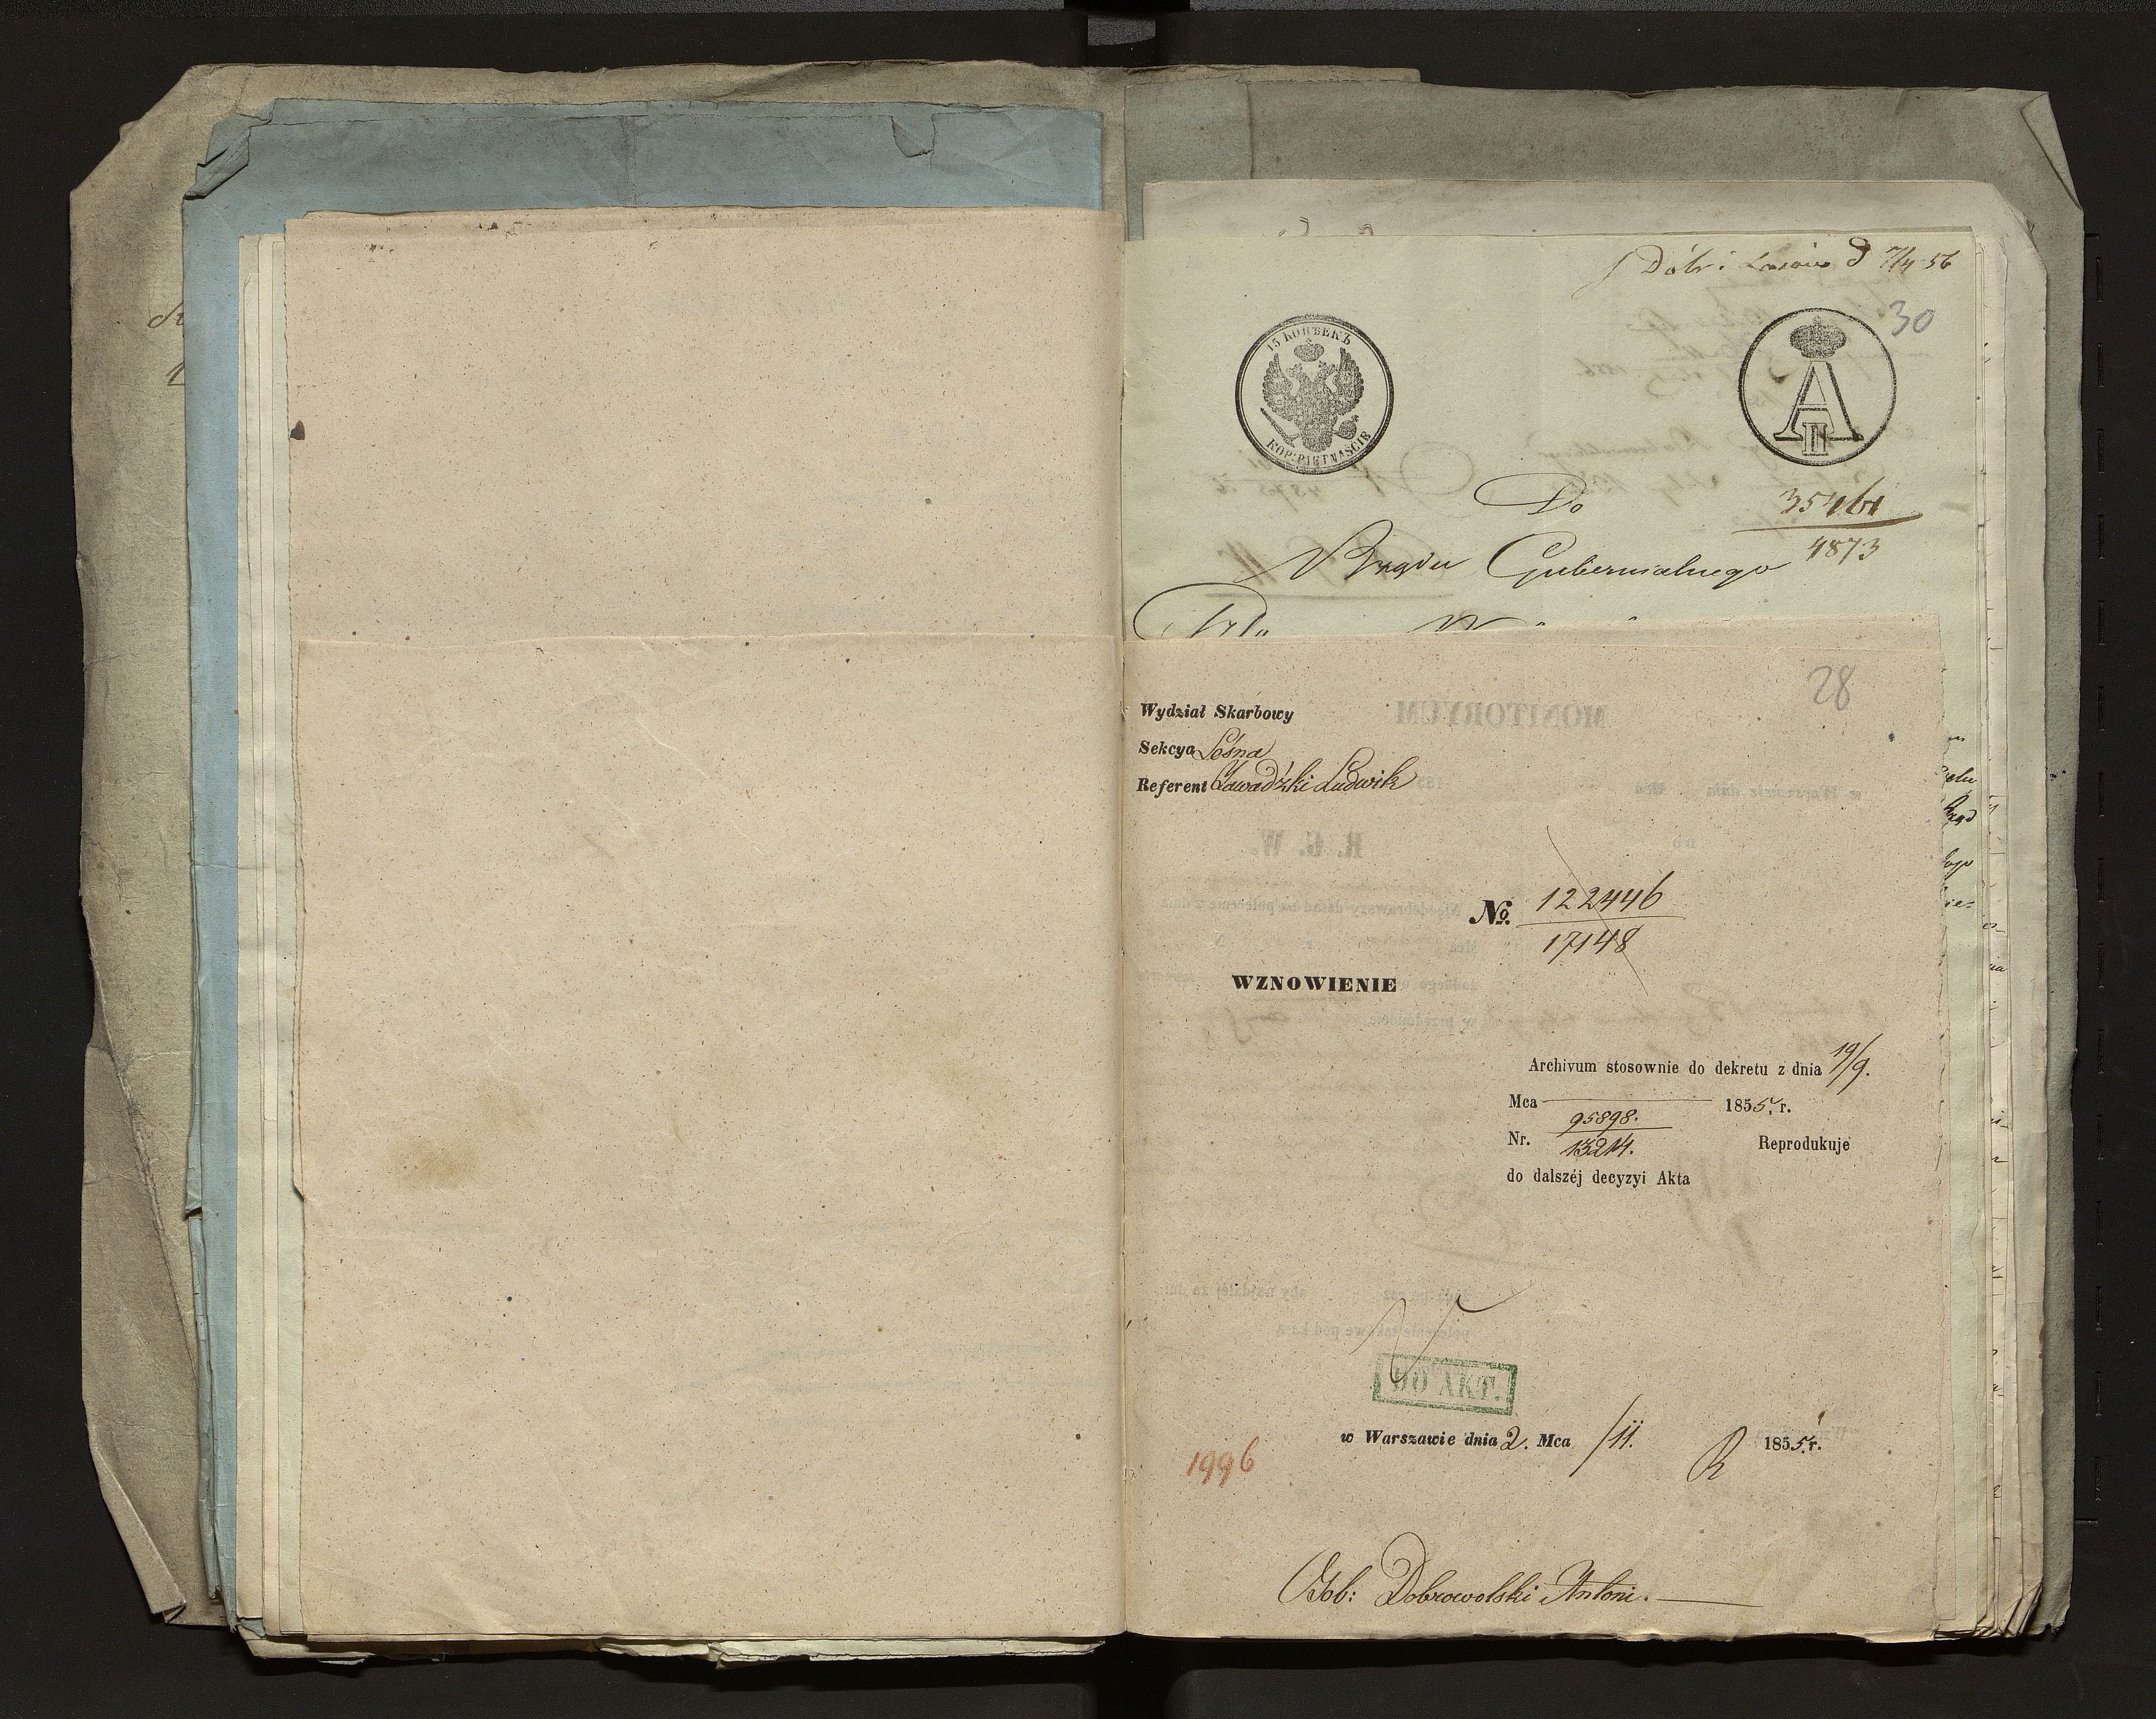 Dóbr i Lasów d 7/4 56
30
15 КОПѢЕКЪ
KOP: PIĘTNAŚCIE
A II
Do
35461
4873
Rządu Gubernialnego
28
Wydział Skarbowy
Sekcya Leśna
Referent Zawadzki Ludwik
№ 122446
17148
WZNOWIENIE
Archivum stosownie do dekretu z dnia 19/9.
Mca 1855. r.
Nr. 95898.
13214. Reprodukuje
do dalszéj decyzyi Akta
DO AKT.
w Warszawie dnia 2. Mca /11. 1855. r.
1996
Dobrowolski Antoni.